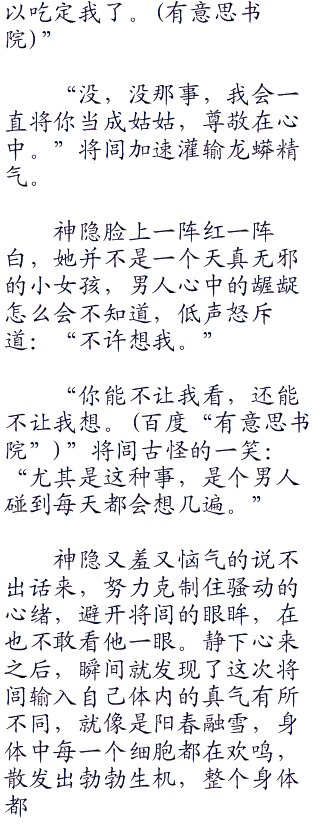 以吃定我了。(有意思书
院)”
“没，没那事，我会一
直将你当成姑姑，尊敬在心
中。”将闾加速灌输龙蟒精
气。
神隐脸上一阵红一阵
白，她并不是一个天真无邪
的小女孩，男人心中的龌龊
怎么会不知道，低声怒斥
道：“不许想我。”
“你能不让我看，还能
不让我想。(百度“有意思书
院”)”将闾古怪的一笑：
“尤其是这种事，是个男人
碰到每天都会想几遍。”
神隐又羞又恼气的说不
出话来，努力克制住骚动的
心绪，避开将闾的眼眸，在
也不敢看他一眼。静下心来
之后，瞬间就发现了这次将
闾输入自己体内的真气有所
不同，就像是阳春融雪，身
体中每一个细胞都在欢鸣，
散发出勃勃生机，整个身体
都